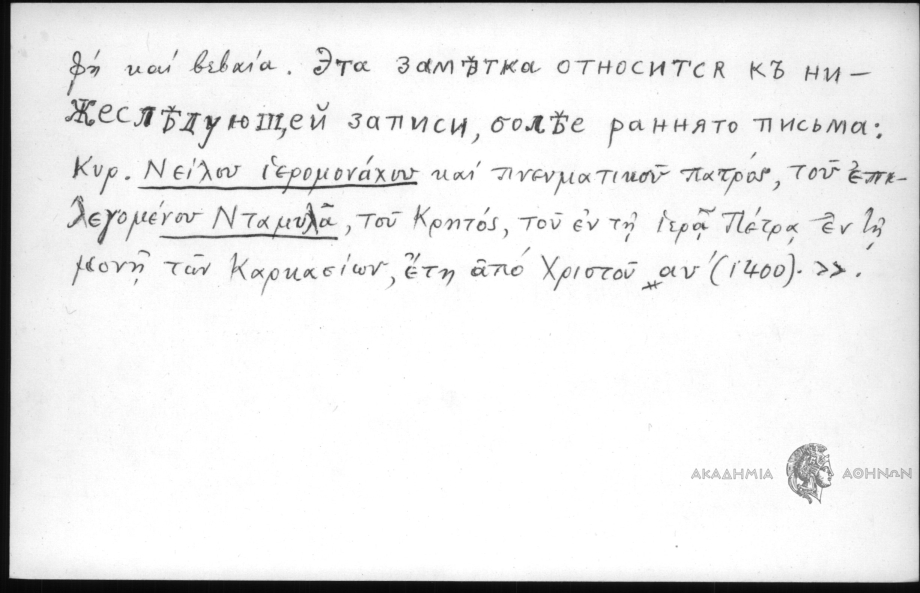 φή καί βεβαία. Эта замѣтка относится къ ни–
жеслѣдующей записи, болѣе раннято письма:
Κυρ. Νείλου ἱερομονάχου καί πνευματικοῦ πατρός, τοῦ ἐπι–
λεγομένου Νταμυλᾶ, τοῦ Κρητός, τοῦ ἐν τῇ ἱερᾷ Πέτρᾳ ἐν τῇ
μονῇ τῶν Καρκασίων, ἔτη ἀπό Χριστοῦ ͵αυ΄ (1400). >>.
ΑΚΑΔΗΜΙΑ ΑΘΗΝΩΝ